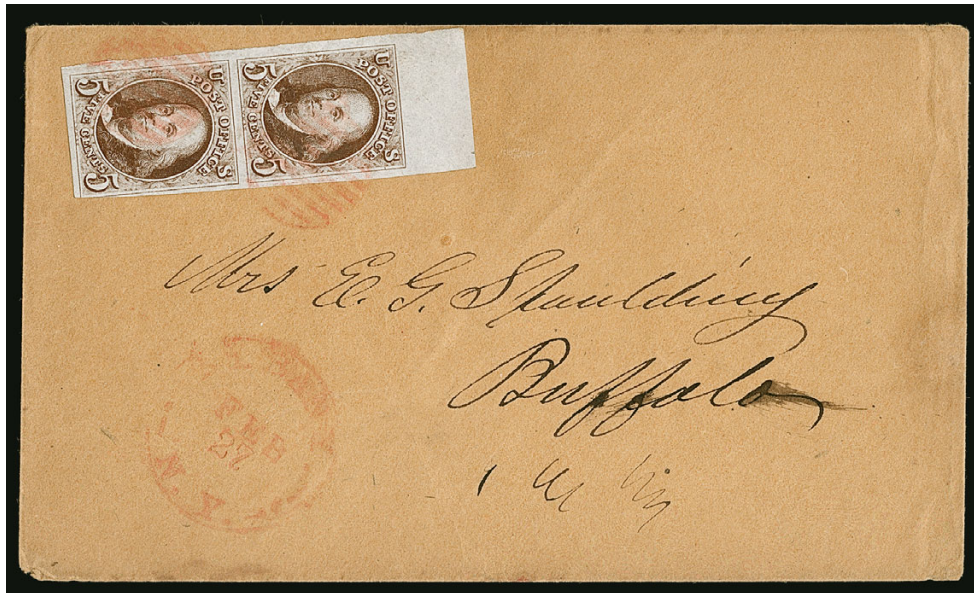 U S
POST OFFICE
FIVE CENTS
5 5
U S
POST OFFICE
FIVE CENTS
5 5
Mrs E. G. Spaulding
Buffalo
FEB
27
N.Y.